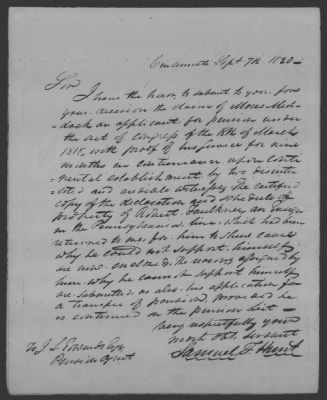 Cincinnati Sept 7th 1820 —
Sir
I have the honor to submit to you for
your decision the claim of Moses Med-
-dock an applicant for pension under
the act of Congress of the 18th of March
1818, with proof of his services for nine
months on continuance upon Conti-
nental establishment by two disinter-
-ested and credible witnesses, The certified
copy of the declaration and schedule of
property of Robert Faulkner an Ensign
in the Pennsylvania line which had been
returned to me for him to shew cause
why he could not support himself
are now enclosed the reasons assigned by
him why he cannot support himself
are submitted as also his application for
a transfer of pension, provided he
is continued on the pension list —
Very respectfully your
most obt. servant
Samuel F. Hunt
To J. L. Edwards Esqr
Pension Agent